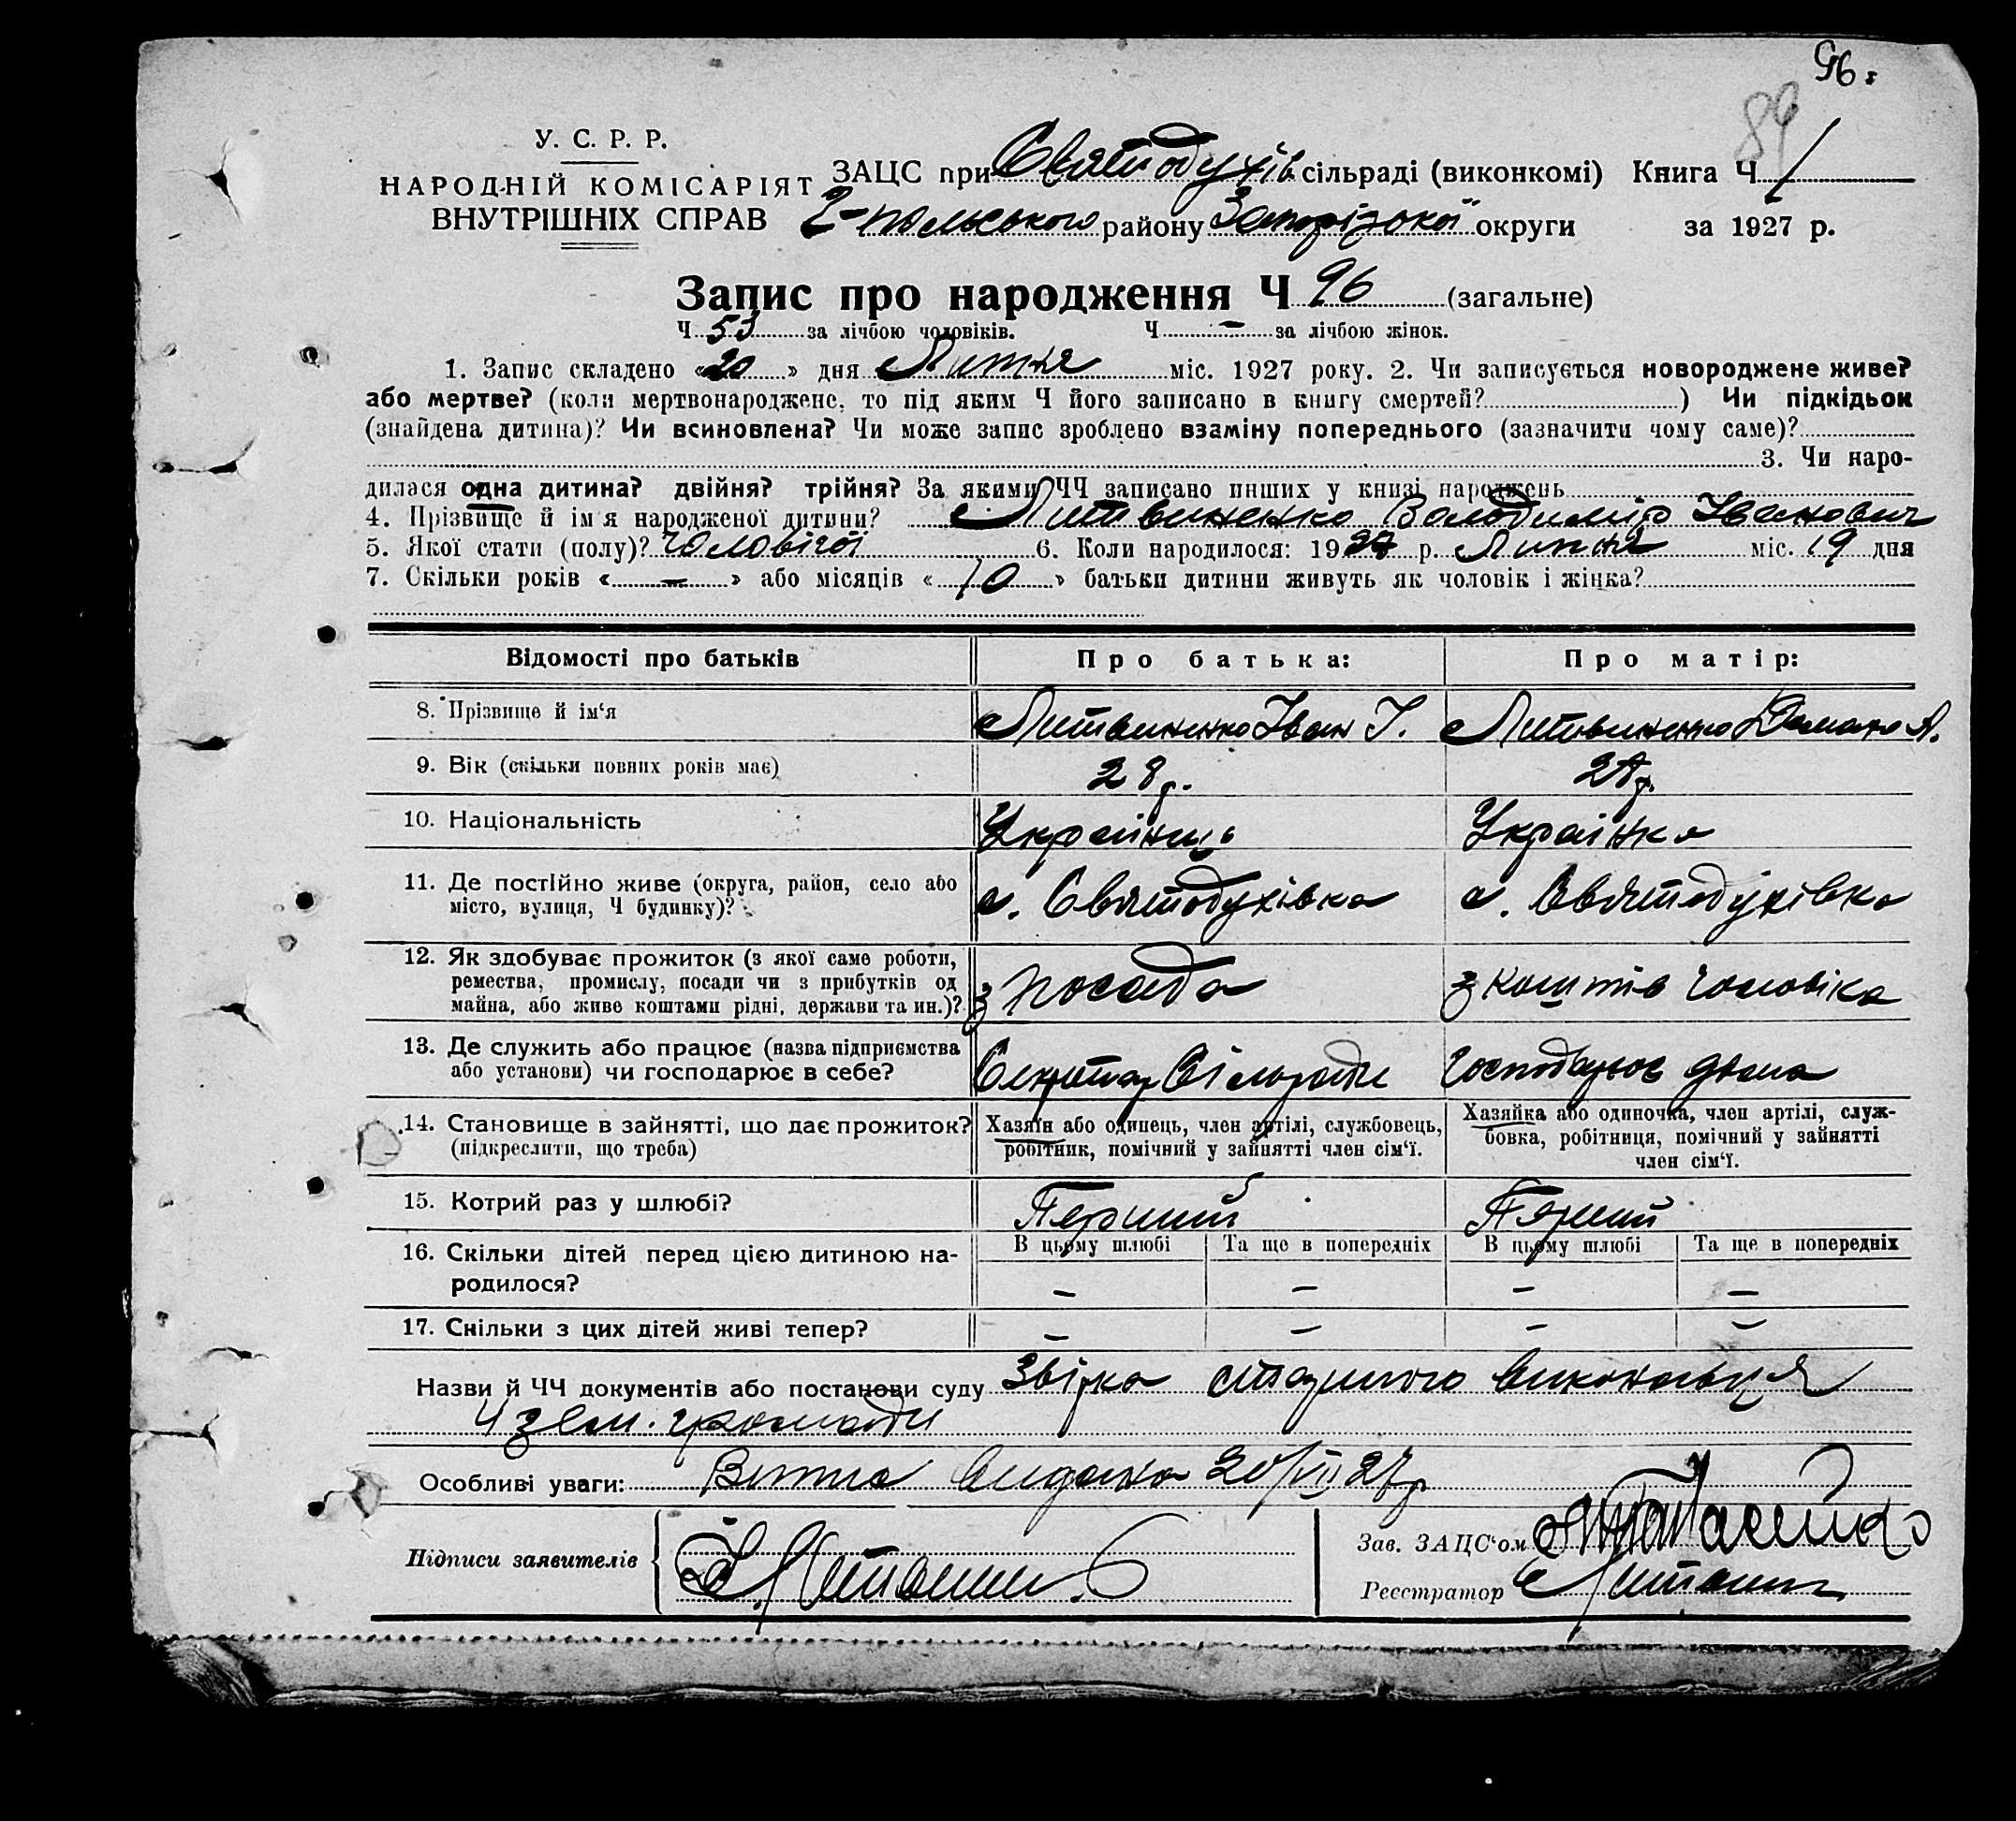 96.
89
У. С. Р. Р.
НАРОДНІЙ КОМІСАРІЯТ
ВНУТРІШНІХ СПРАВ
ЗАЦС при Святодухів сільраді (виконкомі) Книга Ч 1
2-польського району Запорізької округи за 1927 р.
Запис про народження Ч 96 (загальне)
Ч 53 за лічбою чоловіків. Ч — за лічбою жінок.
1. Запис складено «20» дня Липня міс. 1927 року. 2. Чи записується новороджене живе?
або мертве? (коли мертвонароджене, то під яким Ч його записано в книгу смертей?) Чи підкідьок
(знайдена дитина)? Чи всиновлена? Чи може запис зроблено взаміну попереднього (зазначити чому саме)?
3. Чи наро-
дилася одна дитина? двійня? трійня? За якими ЧЧ записано инших у книзі народжень
4. Прізвище й ім'я народженої дитини? Литвиненко Володимір Іванович
5. Якої стати (полу)? Чоловічої 6. Коли народилося: 1927 р. Липня міс. 19 дня
7. Скільки років «—» або місяців «10» батьки дитини живуть як чоловік і жінка?
Відомості про батьків Про батька: Про матір:
8. Прізвище й ім'я Литвиненко Іван І. Литвиненко А.
9. Вік (скільки повних років має) 28 р. р.
10. Національність Українець Українка
11. Де постійно живе (округа, район, село або
місто, вулиця, Ч будинку)? с. Святодухівка с. Святодухівка
12. Як здобуває прожиток (з якої саме роботи,
ремества, промислу, посади чи з прибутків од
майна, або живе коштами рідні, держави та ин.)? з посада з коштів чоловіка
13. Де служить або працює (назва підприємства
або установи) чи господарює в себе? Секретар Сільради дома
14. Становище в зайнятті, що дає прожиток?
(підкреслити, що треба)
Хазяїн або одинець, член артілі, службовець,
робітник, помічний у зайнятті член сім'ї.
Хазяйка або одиночка, член артілі, служ-
бовка, робітниця, помічний у зайнятті
член сім'ї.
15. Котрий раз у шлюбі? Перший Перший
16. Скільки дітей перед цією дитиною на-
родилося?
В цьому шлюбі Та ще в попередніх В цьому шлюбі Та ще в попередніх
— — — —
17. Скільки з цих дітей живі тепер? — — — —
Назви й ЧЧ документів або постанови суду Звірка старшого виконавця
Ч зем. громади
Особливі уваги: видана 20/VII 27 р
Підписи заявителів
Зав. ЗАЦС'ом
Реєстратор